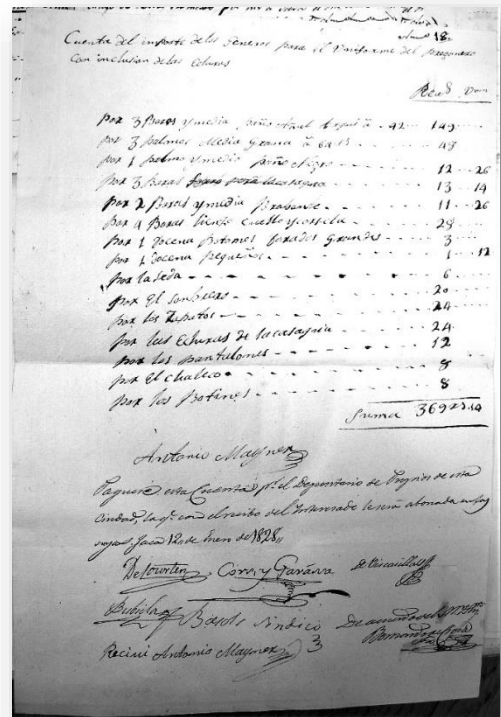 Cuenta del importe delos Generos para el Uniforme del pregonero
Con inclusion delas Echuras
Rea.s
por 3 Baras y media paño Azul 42 149
por 3 palmos Media Grana 48
por 1 palmo y medio paño Negro 12 26
por 3 Baras forro para la casaca 13 14
por 2 Baras y media Brabante 11 26
por 4 Baras 28
por 1 Docena Botones Grandes 3
por 1 Docena pequeños 1 12
por la seda 6
por El sombrero 20
por los Zapatos 24
por las Echuras de la casaca 24
por los pantalones 12
por El chaleco 8
por los Botines 8
Suma 369
Antonio Mayner
Paguese esta Cuenta p.r el Depositario de Propios de esta
Ciudad, la q.e con el recibo del Interesado le sera abonada en las
suyas. Jaca 12 de Enero de 1828
Sindico
Recivi Antonio Mayner